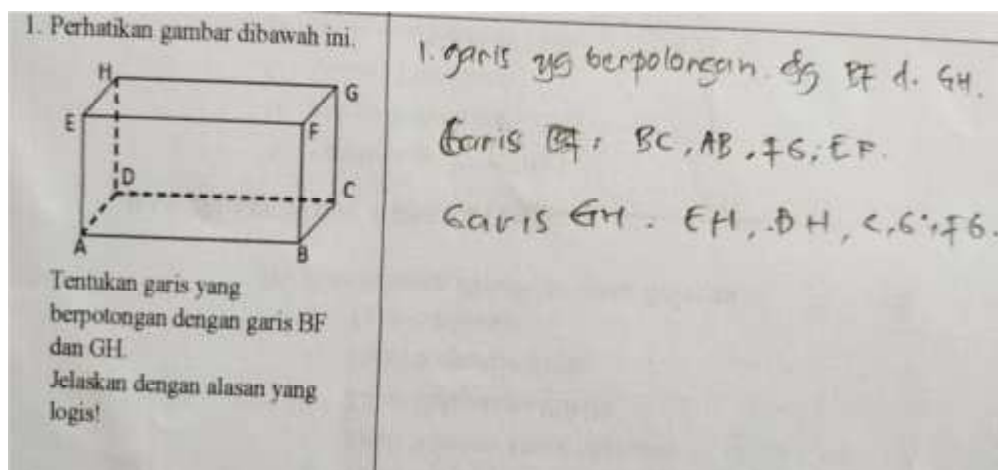 1. Perhatikan gambar dibawah ini.
H
G
E
F
D
C
A
B
Tentukan garis yang
berpotongan dengan garis BF
dan GH.
Jelaskan dengan alasan yang
logis!
1. garis yg berpolongan dg BF d. GH.
Garis BF : BC, AB, FG, EF.
Garis GH . EH, DH, C,G, FG.